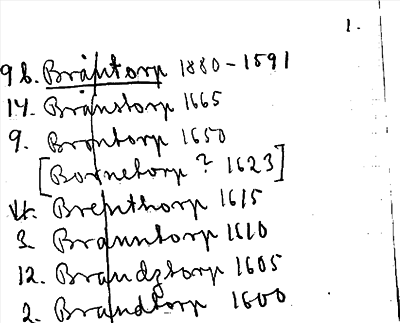 1.
96. Bräntorp 1880-1891
14. Bränstorp 1665
9. Brontorp 1650
[Bornetorp? 1623]
Brenthorp 1615
3. Branntorp 1610
12. Brandztorp 1605
2. Brandtorp 1600